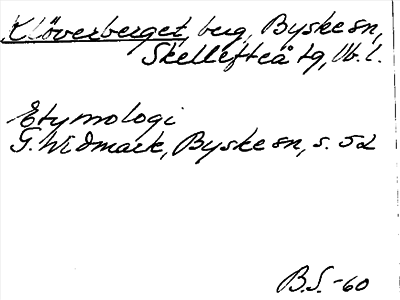 Klöverberget, berg, Byske sn,
Skellefteå tg, Vb. l.
Etymologi
G. Widmark, Byske sn, s. 52
B.S. -60